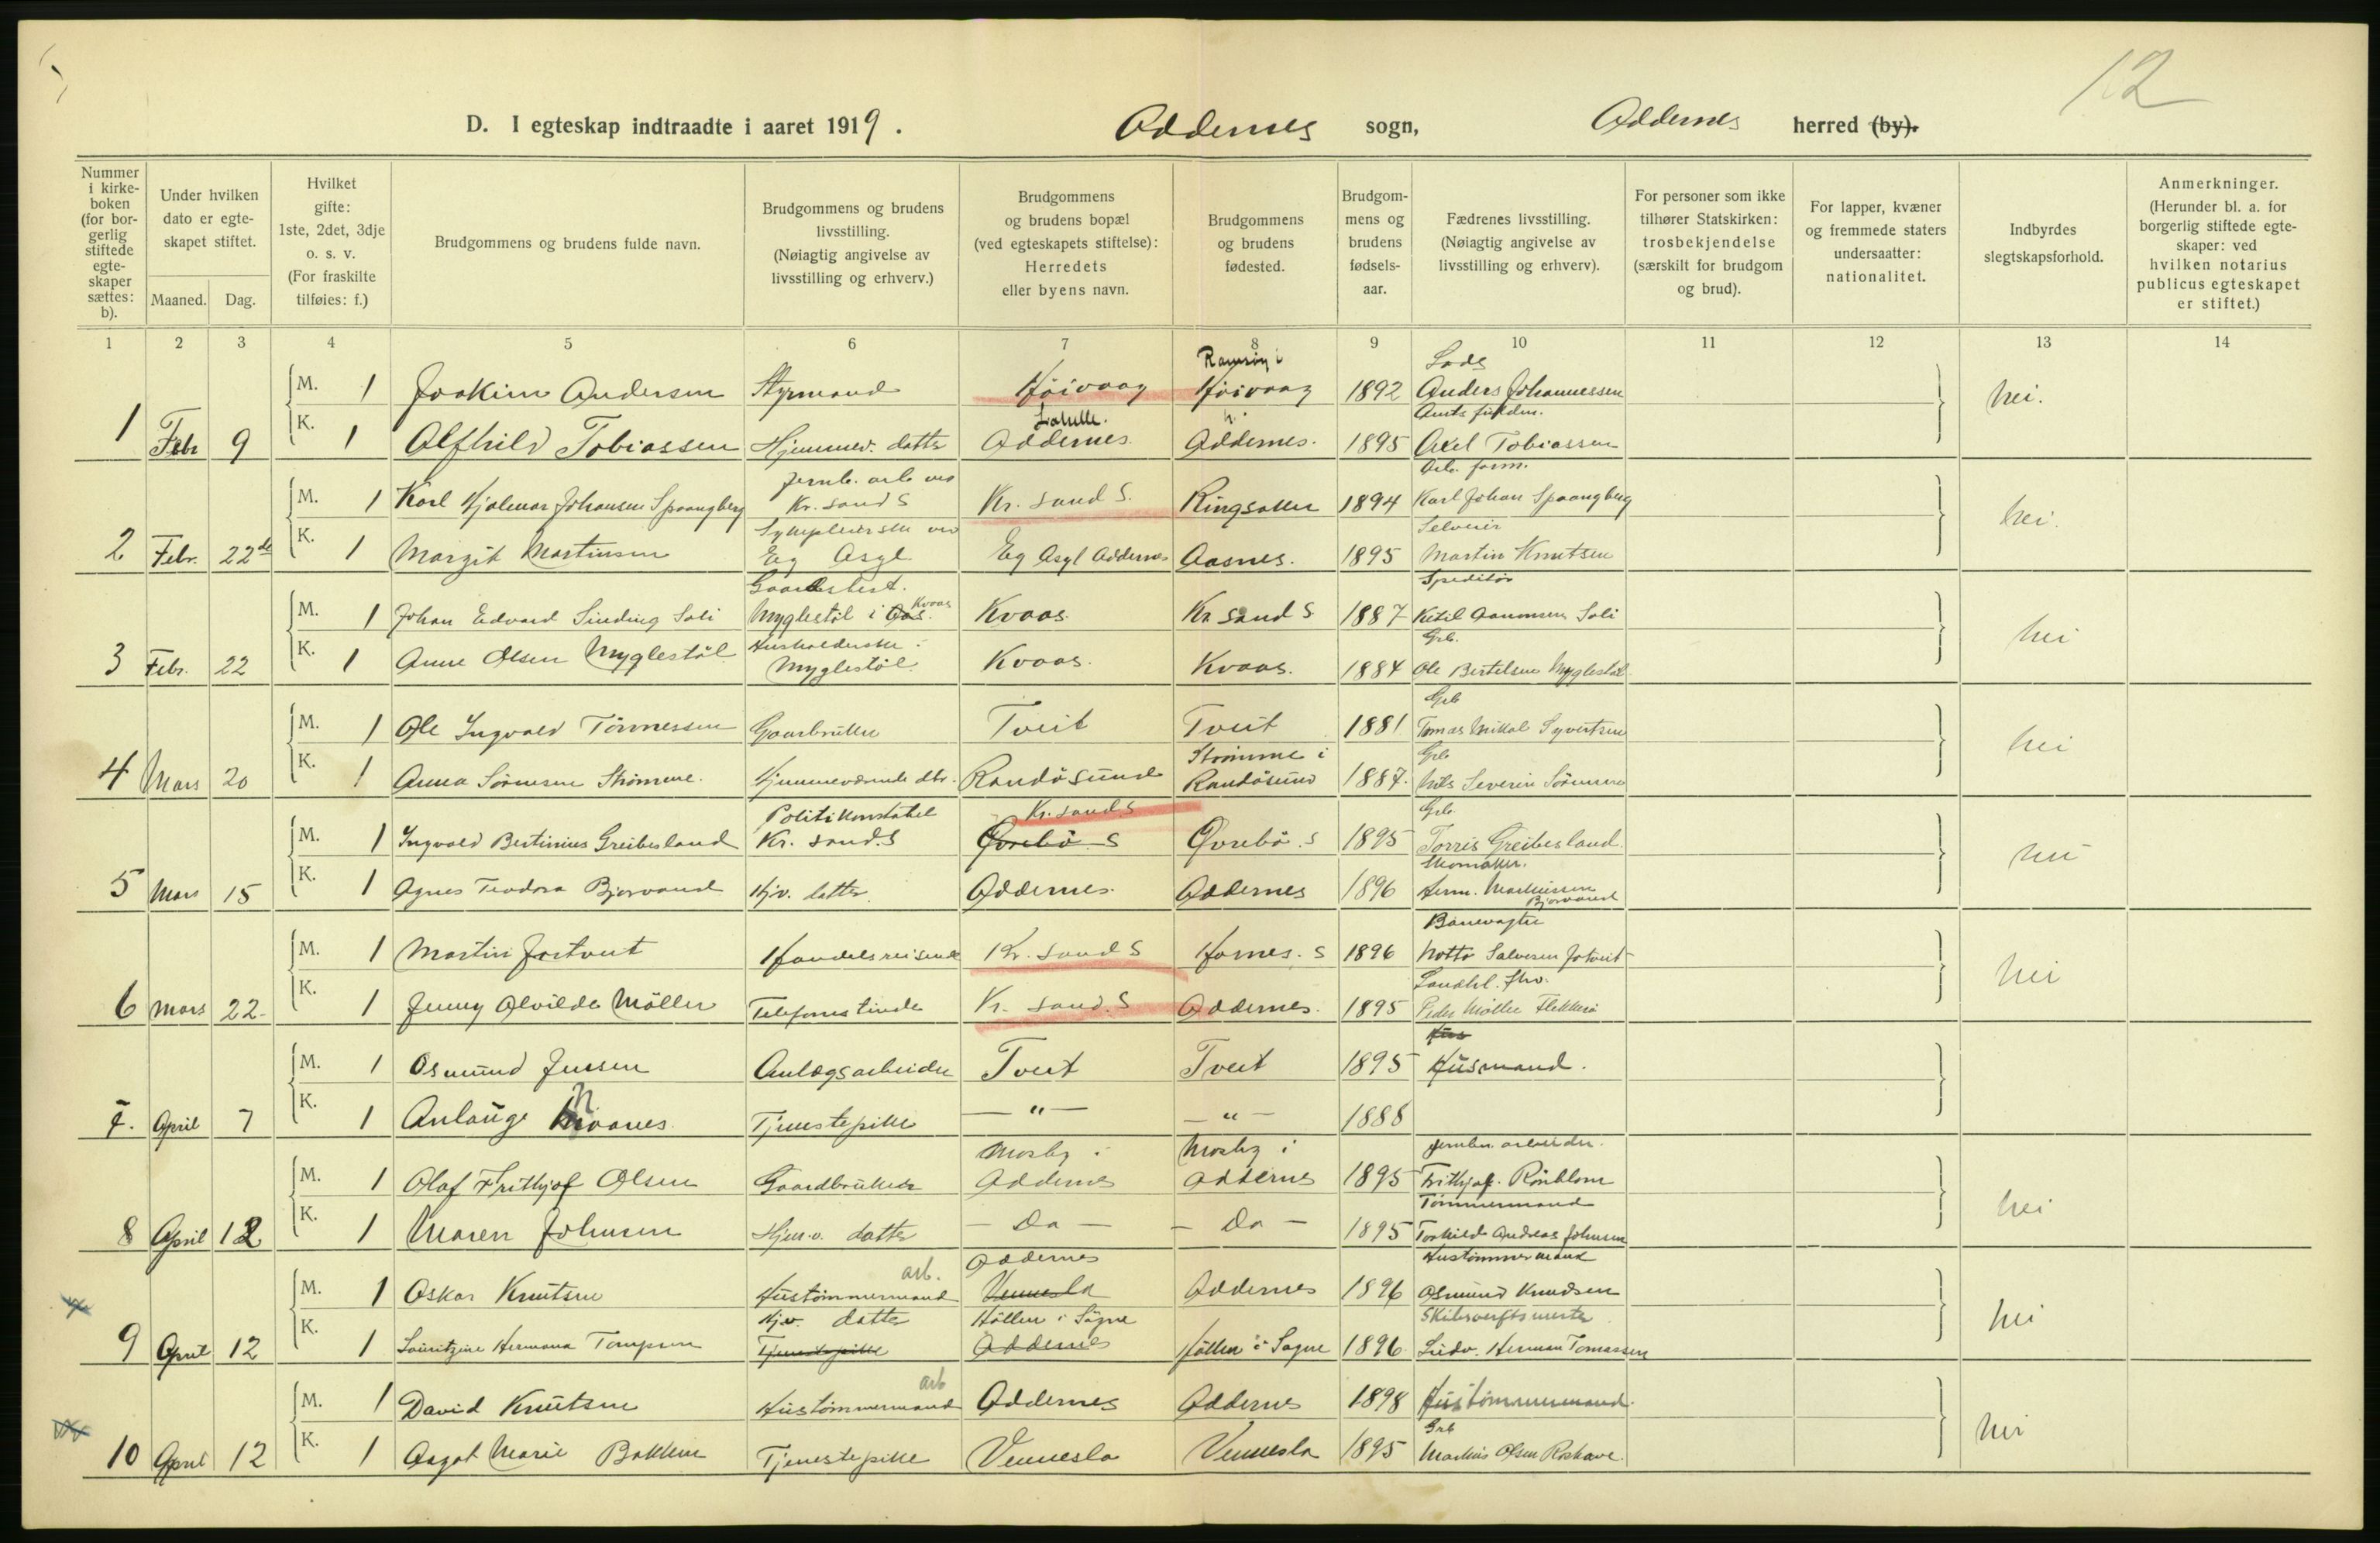 12
D. I egteskap indtraadte i aaret 1919. Oddernes sogn, Oddernes herred (by).
Nummer i kirkeboken (for borgerlig stiftede egteskaper sættes: b).
Under hvilken dato er egteskapet stiftet.
Maaned. Dag.
Hvilket gifte: 1ste, 2det, 3dje o. s. v. (For fraskilte tilføies: f.)
Brudgommens og brudens fulde navn.
Brudgommens og brudens livsstilling. (Nøiagtig angivelse av livsstilling og erhverv.)
Brudgommens og brudens bopæl (ved egteskapets stiftelse): Herredets eller byens navn.
Brudgommens og brudens fødested.
Brudgommens og brudens fødselsaar.
Fædrenes livsstilling. (Nøiagtig angivelse av livsstilling og erhverv).
For personer som ikke tilhører Statskirken: trosbekjendelse (særskilt for brudgom og brud).
For lapper, kvæner og fremmede staters undersaatter: nationalitet.
Indbyrdes slegtskapsforhold.
Anmerkninger. (Herunder bl. a. for borgerlig stiftede egteskaper: ved hvilken notarius publicus egteskapet er stiftet.)
1 2 3 4 5 6 7 8 9 10 11 12 13 14
Ramsøy i Lods
M. 1 Joakim Andersen Styrmand Høivaag Høivaag 1892 Anders Johannessen nei.
1 Febr 9 K. 1 Alfhild Tobiassen Hjemmev. datter Oddernes. Oddernes. 1895 Axel Tobiassen
Jernb. arb ved Arb. form.
M. 1 Karl Hjalmar Johansen Spaangberg Kr. sand S Kr. sand S. Ringsaker 1894 Karl Johan Spaangberg nei.
Selveier
2 Febr. 22de K. 1 Margit Martinsen Eg Asyl Eg Asyl Oddernes Aasnes. 1895 Martin Knutsen
Gaardsbest. Speditør
M. 1 Johan Edvard Sinding Soli Myglestøl i Aas. Kvaas Kvaas. Kr sand S 1887 Ketil Aanonsen Soli nei
Husholderske Grb.
3 Febr. 22 K. 1 Anne Olsen Myglestøl Myglestøl Kvaas. Kvaas. 1884 Ole Bertelsen Myglestøl
Grb
M. 1 Ole Ingvald Tönnessen Gaardbruker Tveit Tveit 1881 Tomas Mikal Syvertsen nei
Strömme i Grb
4 Mars 20 K. 1 Anna Sörensen Strömme. Hjemmeværende dtr. Randösund Randösund 1887. Nils Severin Sörensen
Politikonstabel Kr. sand. S Grb.
M. 1 Ingvald Bertinius Greibesland Kr. sand. S Øvrebö S Øvrebö. S 1895 Torris Greibesland. nei
Skomaker.
5 Mars 15 K. 1 Agnes Teodora Bjorvand Hjv. datter. Oddernes. Oddernes 1896 Herm. Mathissen Bjorvand
Banevogter
M. 1 Martin Jortveit Handelsreisende Kr. sand S Hornes. S 1896 Notto Salvesen Jortveit nei
6 Mars 22. K. 1 Jenny Alvilde Möller Telefonistinde Kr. sand. S Oddernes. 1895 Peder Möller Flekkerö
Hus
M. 1 Osmund Jensen Anlægsarbeider Tveit Tveit 1895 Husmand.
7. April 7 K. 1 Anlaug Tjenestepike — " — — " — 1888
Mosby i Mosby i Jernbn. arbeider.
M. 1 Olaf Frithjof Olsen Gaardbruker Oddernes Oddernes 1895 Frithjof. Rönblom nei
Tömmermand
8 April 12 K. 1 Maren Johnsen Hjem.v. datter — Do — — Do — 1895 Torkild Andreas Johnsen
arb. Oddernes Hustömmermand
M. 1 Oskar Knutsen Hustömmermand Vennesla Oddernes 1896 Osmund Knudsen nei
Hjv. datter Höllen i Sögne Skibsverftsmester
9 April 12 K. 1 Lauritzine Hermana Tompsen Tjenestepike Oddernes Höllen i Sögne 1896 Ludv. Herman Tomassen
arb
M. 1 David Knutsen Hustömmermand Oddernes Oddernes 1898 Hustömmermand. nei
Grb
10 April 12 K. 1 Aagot Marie Bakken Tjenestepike Vennesla Vennesla 1895 Markus Olsen